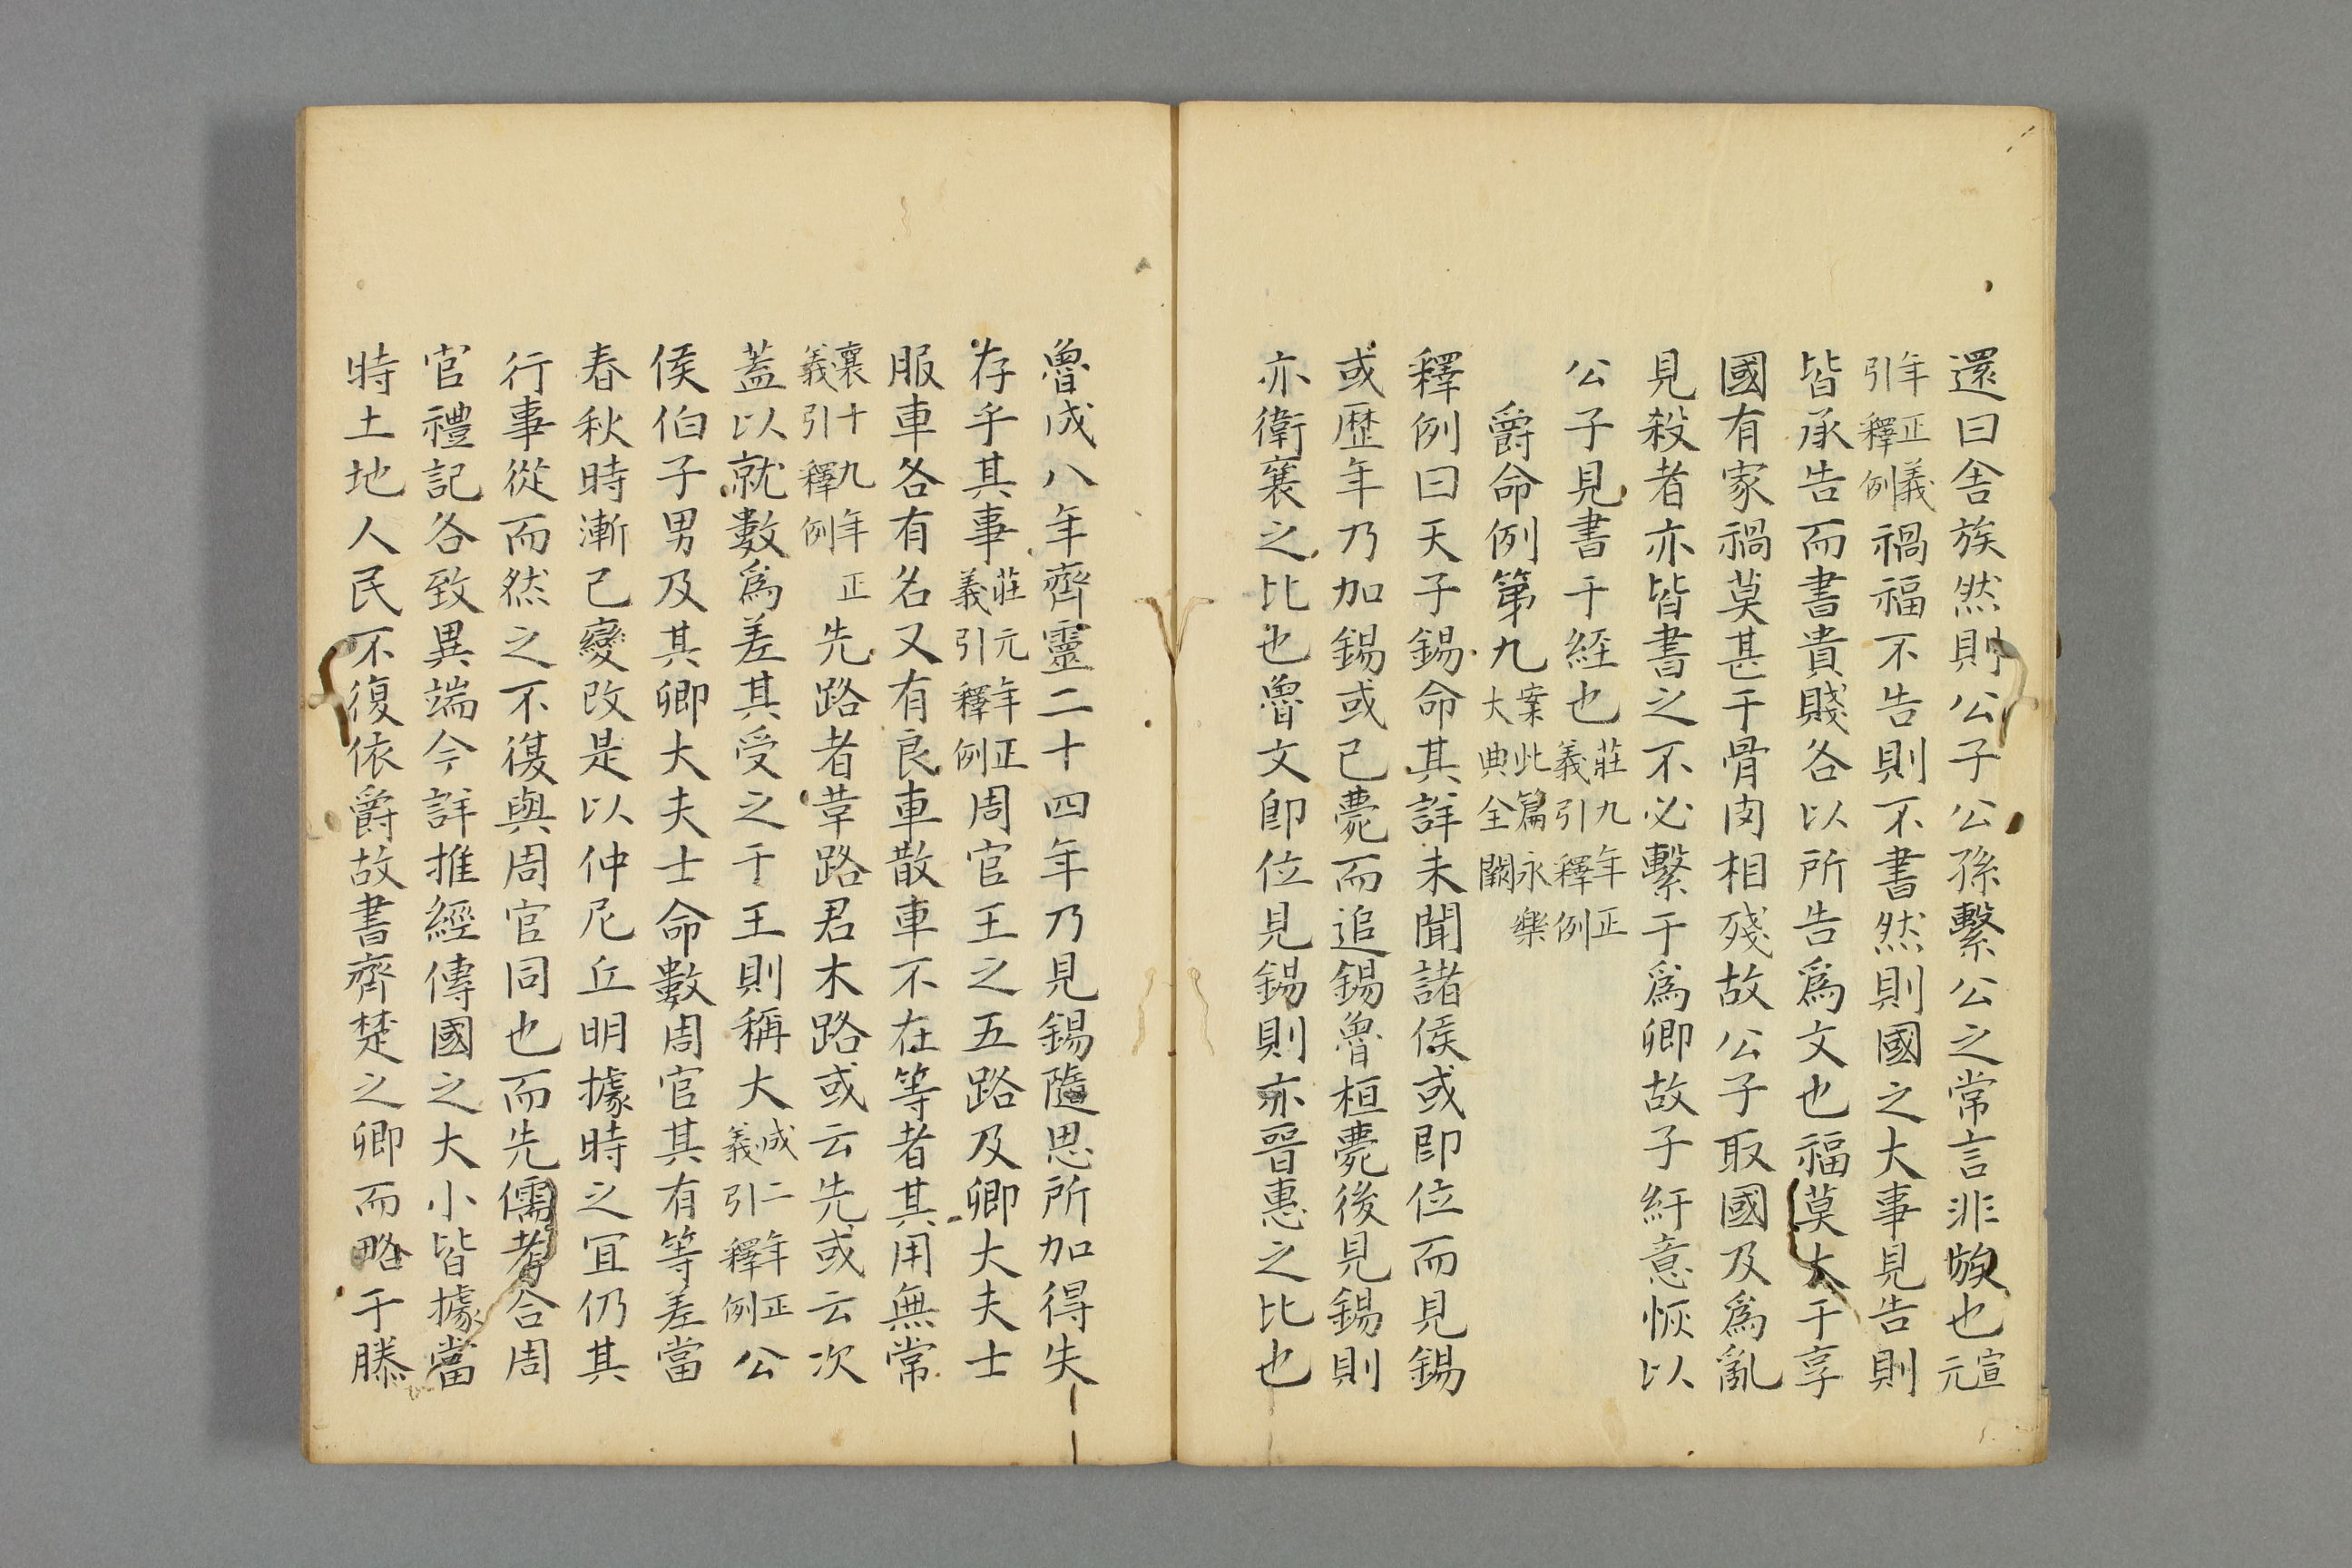 還曰舍族然則公子公孫繫公之常言非族也宣元
年正義引釋例禍福不告則不書然則國之大事見告則
皆承告而書貴賤各以所告爲文也福莫大于享
國有家禍莫甚于骨肉相殘故公子取國及爲亂
見殺者亦皆書之不必繫于爲卿故子紆意恢以
公子見書于經也莊九年正義引釋例
爵命例第九案此篇永樂大典全闕
釋例曰天子錫命其詳未聞諸侯或即位而見錫
或歷年乃加錫或已薨而追錫魯桓薨後見錫則
亦衛襄之比也魯文即位見錫則亦晉惠之比也
魯成八年齊靈二十四年乃見錫隨恩所加得失
存乎其事莊元年正義引釋例周官王之五路及卿大夫士
服車各有名又有良車散車不在等者其用無常
襄十九年正義引釋例先路者革路君木路或云先或云次
蓋以就數爲差其受之于王則稱大成二年正義引釋例公
侯伯子男及其卿大夫士命數周官其有等差當
春秋時漸已變改是以仲尼丘明據時之宜仍其
行事從而然之不復與周官同也而先儒考合周
官禮記各致異端今詳推經傳國之大小皆據當
時土地人民不復依爵故書齊楚之卿而略于滕